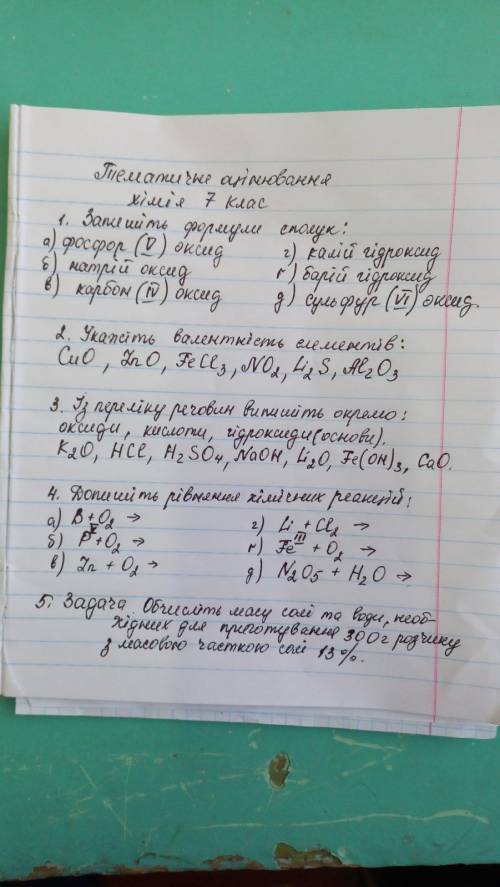 Тематичне оцінювання
хімія 7 клас
1. Запишіть формули сполук:
а) фосфор (V) оксид г) калій гідроксид
б) натрій оксид ґ) барій гідроксид
в) карбон (IV) оксид д) сульфур (VI) оксид.
2. Укажіть валентність елементів:
CuO, ZnO, FeCl₃, NO₂, Li₂S, Al₂O₃
3. Із переліку речовин випишіть окремо:
оксиди, кислоти, гідроксиди(основи).
K₂O, HCl, H₂SO₄, NaOH, Li₂O, Fe(OH)₃, CaO.
4. Допишіть рівняння хімічних реакцій:
а) B + O₂ → г) Li + Cl₂ →
V III
б) P + O₂ → ґ) Fe + O₂ →
в) Zn + O₂ → д) N₂O₅ + H₂O →
5. Задача. Обчисліть масу солі та води, необ-
хідних для приготування 300 г розчину
з масовою часткою солі 13%.